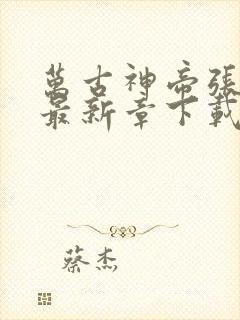 萬古神帝張
最新章下載
蔡杰